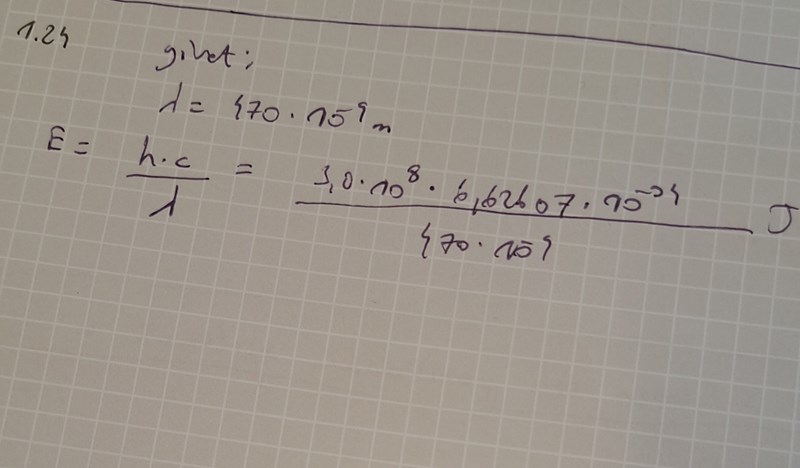 1.24
givet;
λ = 470 · 10⁻⁹ m
E = h·c / λ = 3,0 · 10⁸ · 6,62607 · 10⁻³⁴ / 470 · 10⁻⁹ J